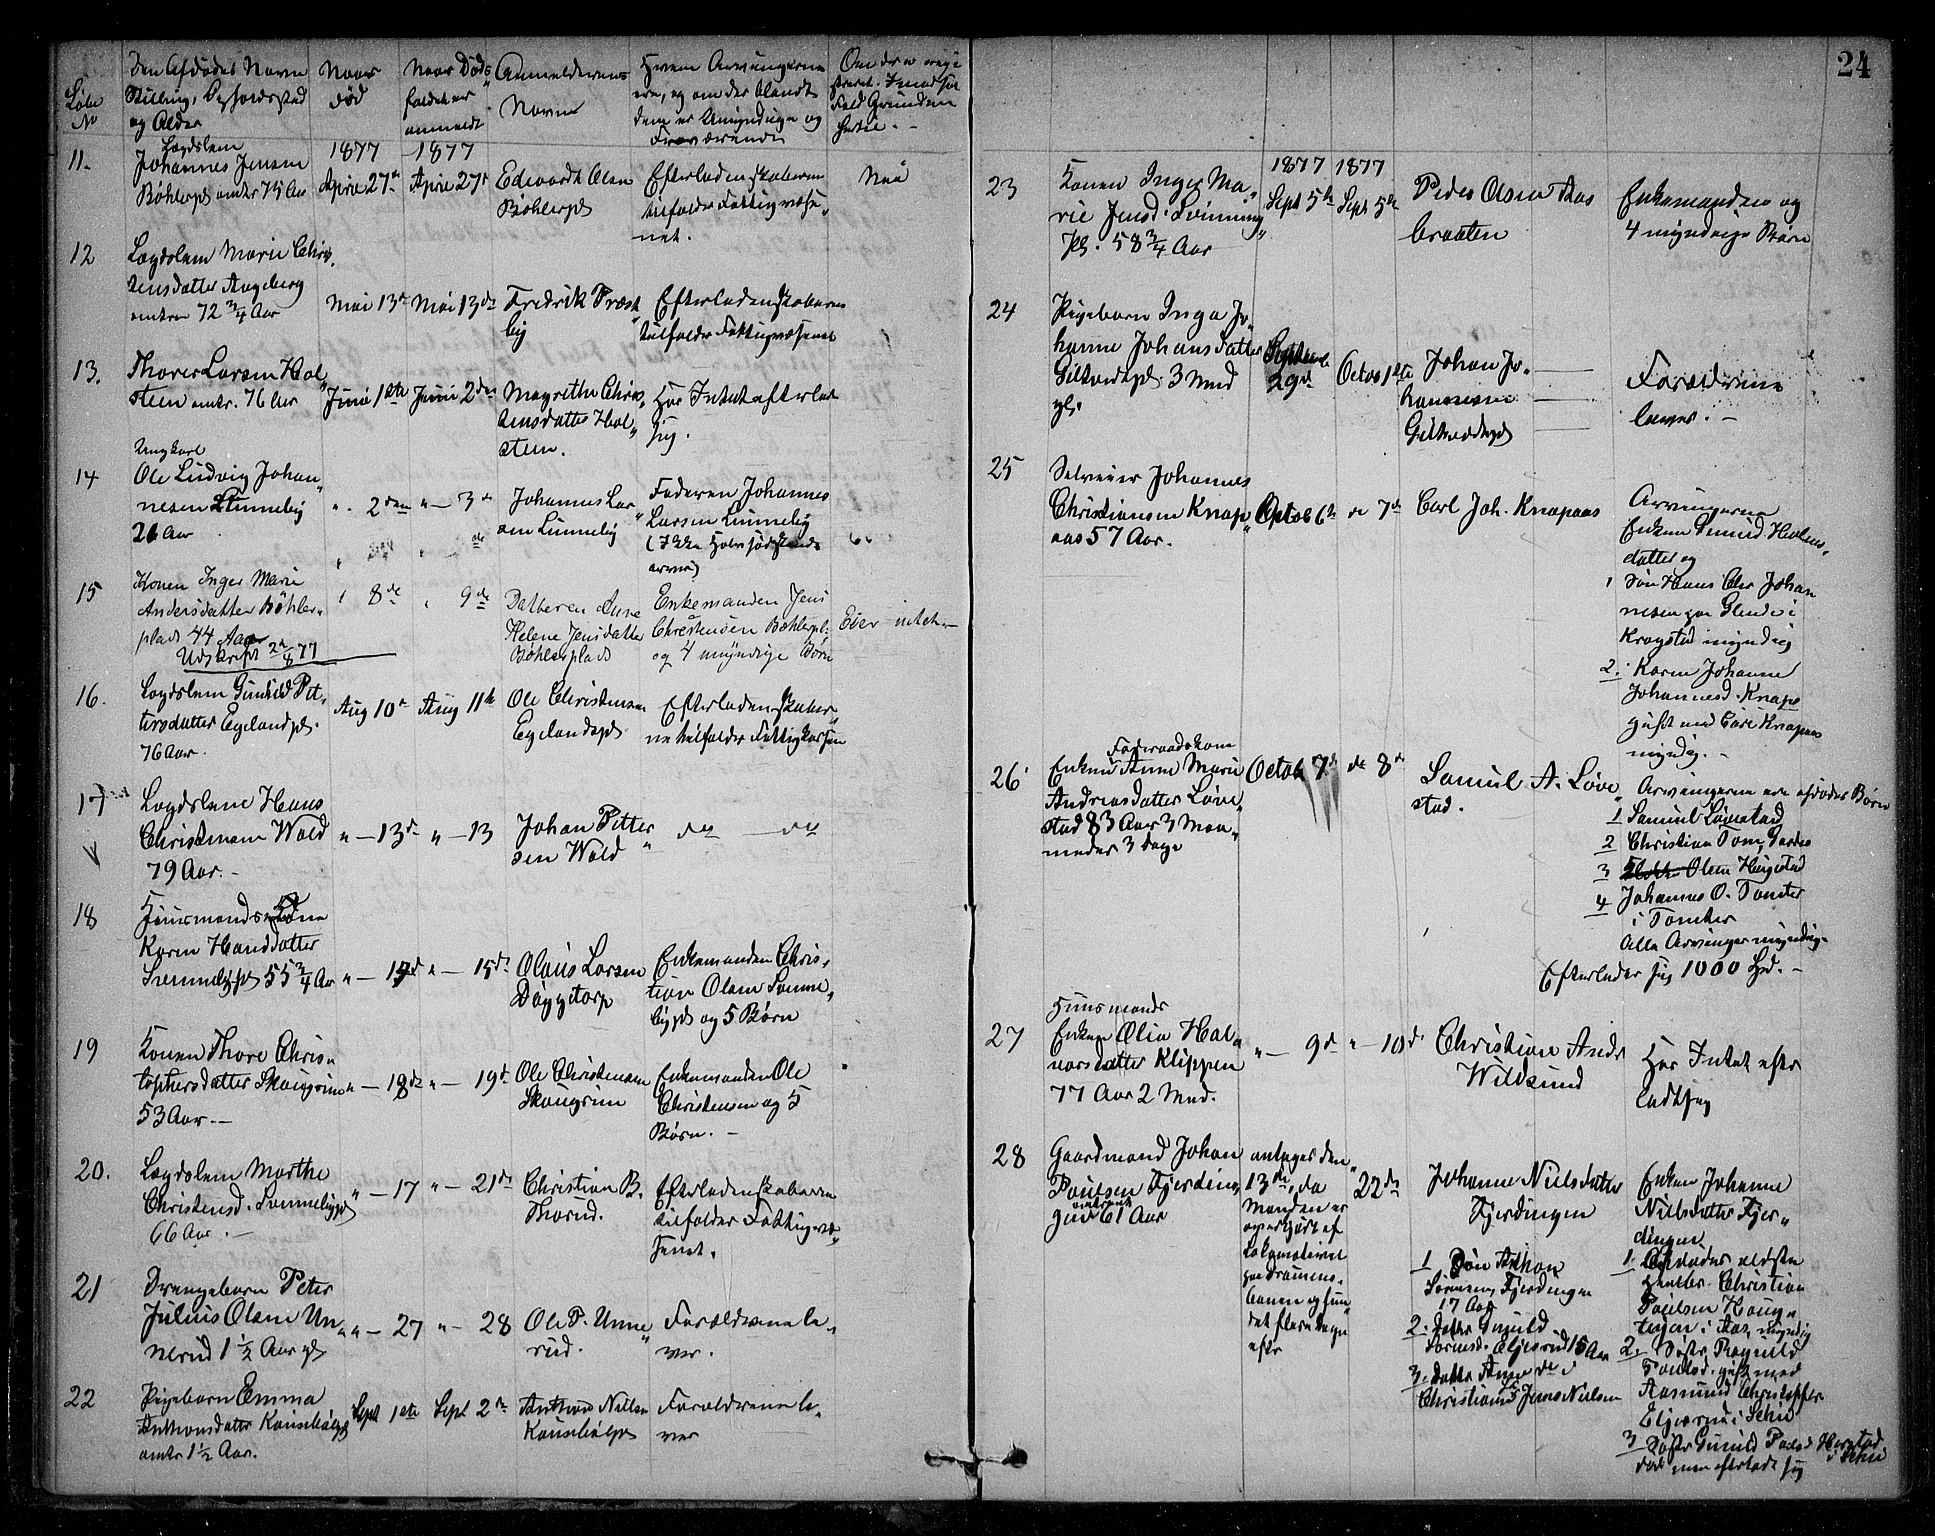 24
Løbe No
Den Afdødes Navn
Stilling, Opholdssted
og Alder
Naar
død
Naar Døds
faldet er
anmeldt
Anmelderens
Navn
Hvem Arvingerne
ere, og om der blandt
dem er Umyndige og
Fraværende
11.
Lægdslem
Johannes Jensen
Bøhlerpl omtr 75 Aar
1877
April 27de
1877
April 27
Edvardt Olsen
Bøhlerpl
Efterladenskaberne
tilfalder Fattigvæse-
net.
Nei
12
Lægdslem Marie Chris
tensdatter Angeberg
omtren 72 3/4 Aar
Mai 13de
Mai 13de
Fredrik Præst
by
Efterladenskaberne
tilfalder Fattigvæsenet
13.
Thorer Larsen Hol
steen omtr. 76 Aar
Juni 1ste
Juni 2den
Magrethe Chris
tensdatter Hol
steen.
Har Intet efterladt
sig.
14
Ungkarl
Ole Ludvig Johan
nesen Limneby
26 Aar
" 2den
" — 3de
Johannes Lar
sen Limneby
Faderen Johannes
Larsen Limneby
15
Konen Inger Marie
Andersdatter Bøhler-
plads 44 Aar
Udskrift 2/8 77
" 8de
" 9de
Datteren Anne
Helene Jensdatter
Bøhlerplads
Enkemanden Jens
Christensen Bøhlerpl.
og 4 myndige Børn
Eier intet.
16.
Lægdslem Gunhild Pet-
tersdatter Egelandpl.
76 Aar.
Aug 10de
Aug 11te
Ole Christensen
Egelandspl
Efterladenskaber
ne tilfalder Fattigkassen
17
Lægdslem Hans
Christensen Wold
79 Aar.
" — 13de
" — 13
Johan Petter
sen Wold
do — do
18
Huusmands Kone
Karen Hansdatter
Sremmebypl 55 3/4 Aar
" — 15de
Olaus Larsen
Døggetorp
Enkemanden Chris-
tian Olsen Sremme
bypl og 5 Børn
19
Konen Thore Chris
tophersdatter Skougrim
53 Aar.
" — 18de
" — 19de
Ole Christensen
Skougrim
Enkemanden Ole
Christensen og 5
Børn.
20.
Lægdslem Marthe
Christensd. Sremmebypl
66 Aar.
" — 17
" — 21de
Christian B.
Thorud.
Efterladenskaberne
tilfalder Fattigvæ
senet.
21
Drengebarn Peter
Julius Olsen Un-
nerud 1 1/2 Aar gl
" — 27
" — 28
Ole P. Unne
rud.
Forældrene le-
ver.
22
Pigebarn Emma
Anthonsdatter Kansebølpl
omtr 1 1/2 Aar.
Sept 1ste
Sept 2de
Anthon Nielsen
Kansebølpl
Forældrene le-
ver
23
Konen Inger Ma-
rie Jensd. Svinning
pl. 58 3/4 Aar
1877
Sept 5te
1877
Sept 5te
Peder Olsen Aas
braaten
Enkemanden og
4 myndige Børn
24
Pigebarn Inga Jo-
hanne Johansdatter
Gilhuustpl. 3 Mnd
gl.
Septemb
29de
Octob 1ste
Johan Jo-
hannesen
Forældrene
lever. —
25
Selveier Johannes
Christiansen Knap
aas 57 Aar.
Octob 6te
do 7de
Carl Joh. Knapaas
Arvingerne
datter og
1 Søn Hans Chr Johan
nesen paa Glende i
Kragstad myndig
2. Karen Johanne
Johannesd. Knapaas
gift med Carl Knapaas
myndig. —
26
Føderaadskone
Enken Anne Marie
Andreasdatter Løve
stad 83 Aar 3 Maa
neder 3 dage
Octob 7de
do 8de
Samuel A. Løve
stad.
Arvingerne ere afdødes Børn
1 Samuel Løvestad
2 Christian Tom, Garder
3 Olsen Heigstad
4 Johannes O. Tomter
i Tomter
Alle Arvinger myndig
Efterlader sig 1000 Spd. —
27
Huusmands
Enken Olia Hal
vorsdatter Klippen
77 Aar 2 Mnd.
" — 9de
" — 10de
Christian Andr
Wildsund
Har Intet efter
ladt sig
28
Gaardmand Johan
Poulsen Fjerdin
gen omtrent 61 Aar
antages den
13de, da
Manden er
overkjørt af
Lokomotivet
paa Drammens-
banen og fun
det flere Dage
efter
22de
Johanne Nielsdatter
Fjerdingen
1 Søn Anthon
Sørensen, Fjerdingen
17 Aar
2. Datter Gunild
Sørensd. Eljesrud 15 Aar
3. Datter Anne do i
Christiania Jens Nielsen
Enken Johanne
Nielsdatter Fjer
dingen.
1. Afdødes ældste
Christian
Poulsen Haug
i Aas, myndig
2. Datter Ragnild
Poulsd. gift med
Aasmund Christopher
Eljesrud i Schie
3 Datter Gunild Poulsd Herstad
i Schie
død men efterladt sig